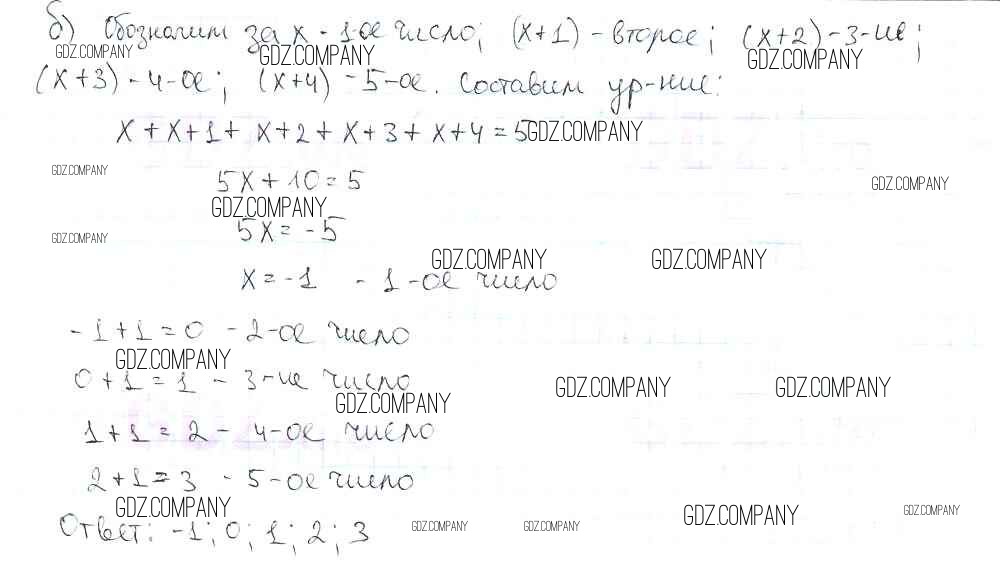 б) Обозначим за x - 1-ое число; (x+1) - второе; (x+2) - 3-ие;
GDZ.COMPANY GDZ.COMPANY GDZ.COMPANY
(x+3) - 4-ое; (x+4) - 5-ое. Составим ур-ние:
x + x+1 + x+2 + x+3 + x+4 = 5 GDZ.COMPANY
GDZ.COMPANY 5x + 10 = 5 GDZ.COMPANY
GDZ.COMPANY
GDZ.COMPANY 5x = -5
GDZ.COMPANY GDZ.COMPANY
x = -1 - 1-ое число
-1+1=0 - 2-ое число
GDZ.COMPANY
0+1=1 - 3-ие число GDZ.COMPANY GDZ.COMPANY
GDZ.COMPANY
1+1=2 - 4-ое число
2+1=3 - 5-ое число
GDZ.COMPANY GDZ.COMPANY GDZ.COMPANY
Ответ: -1; 0; 1; 2; 3 GDZ.COMPANY GDZ.COMPANY